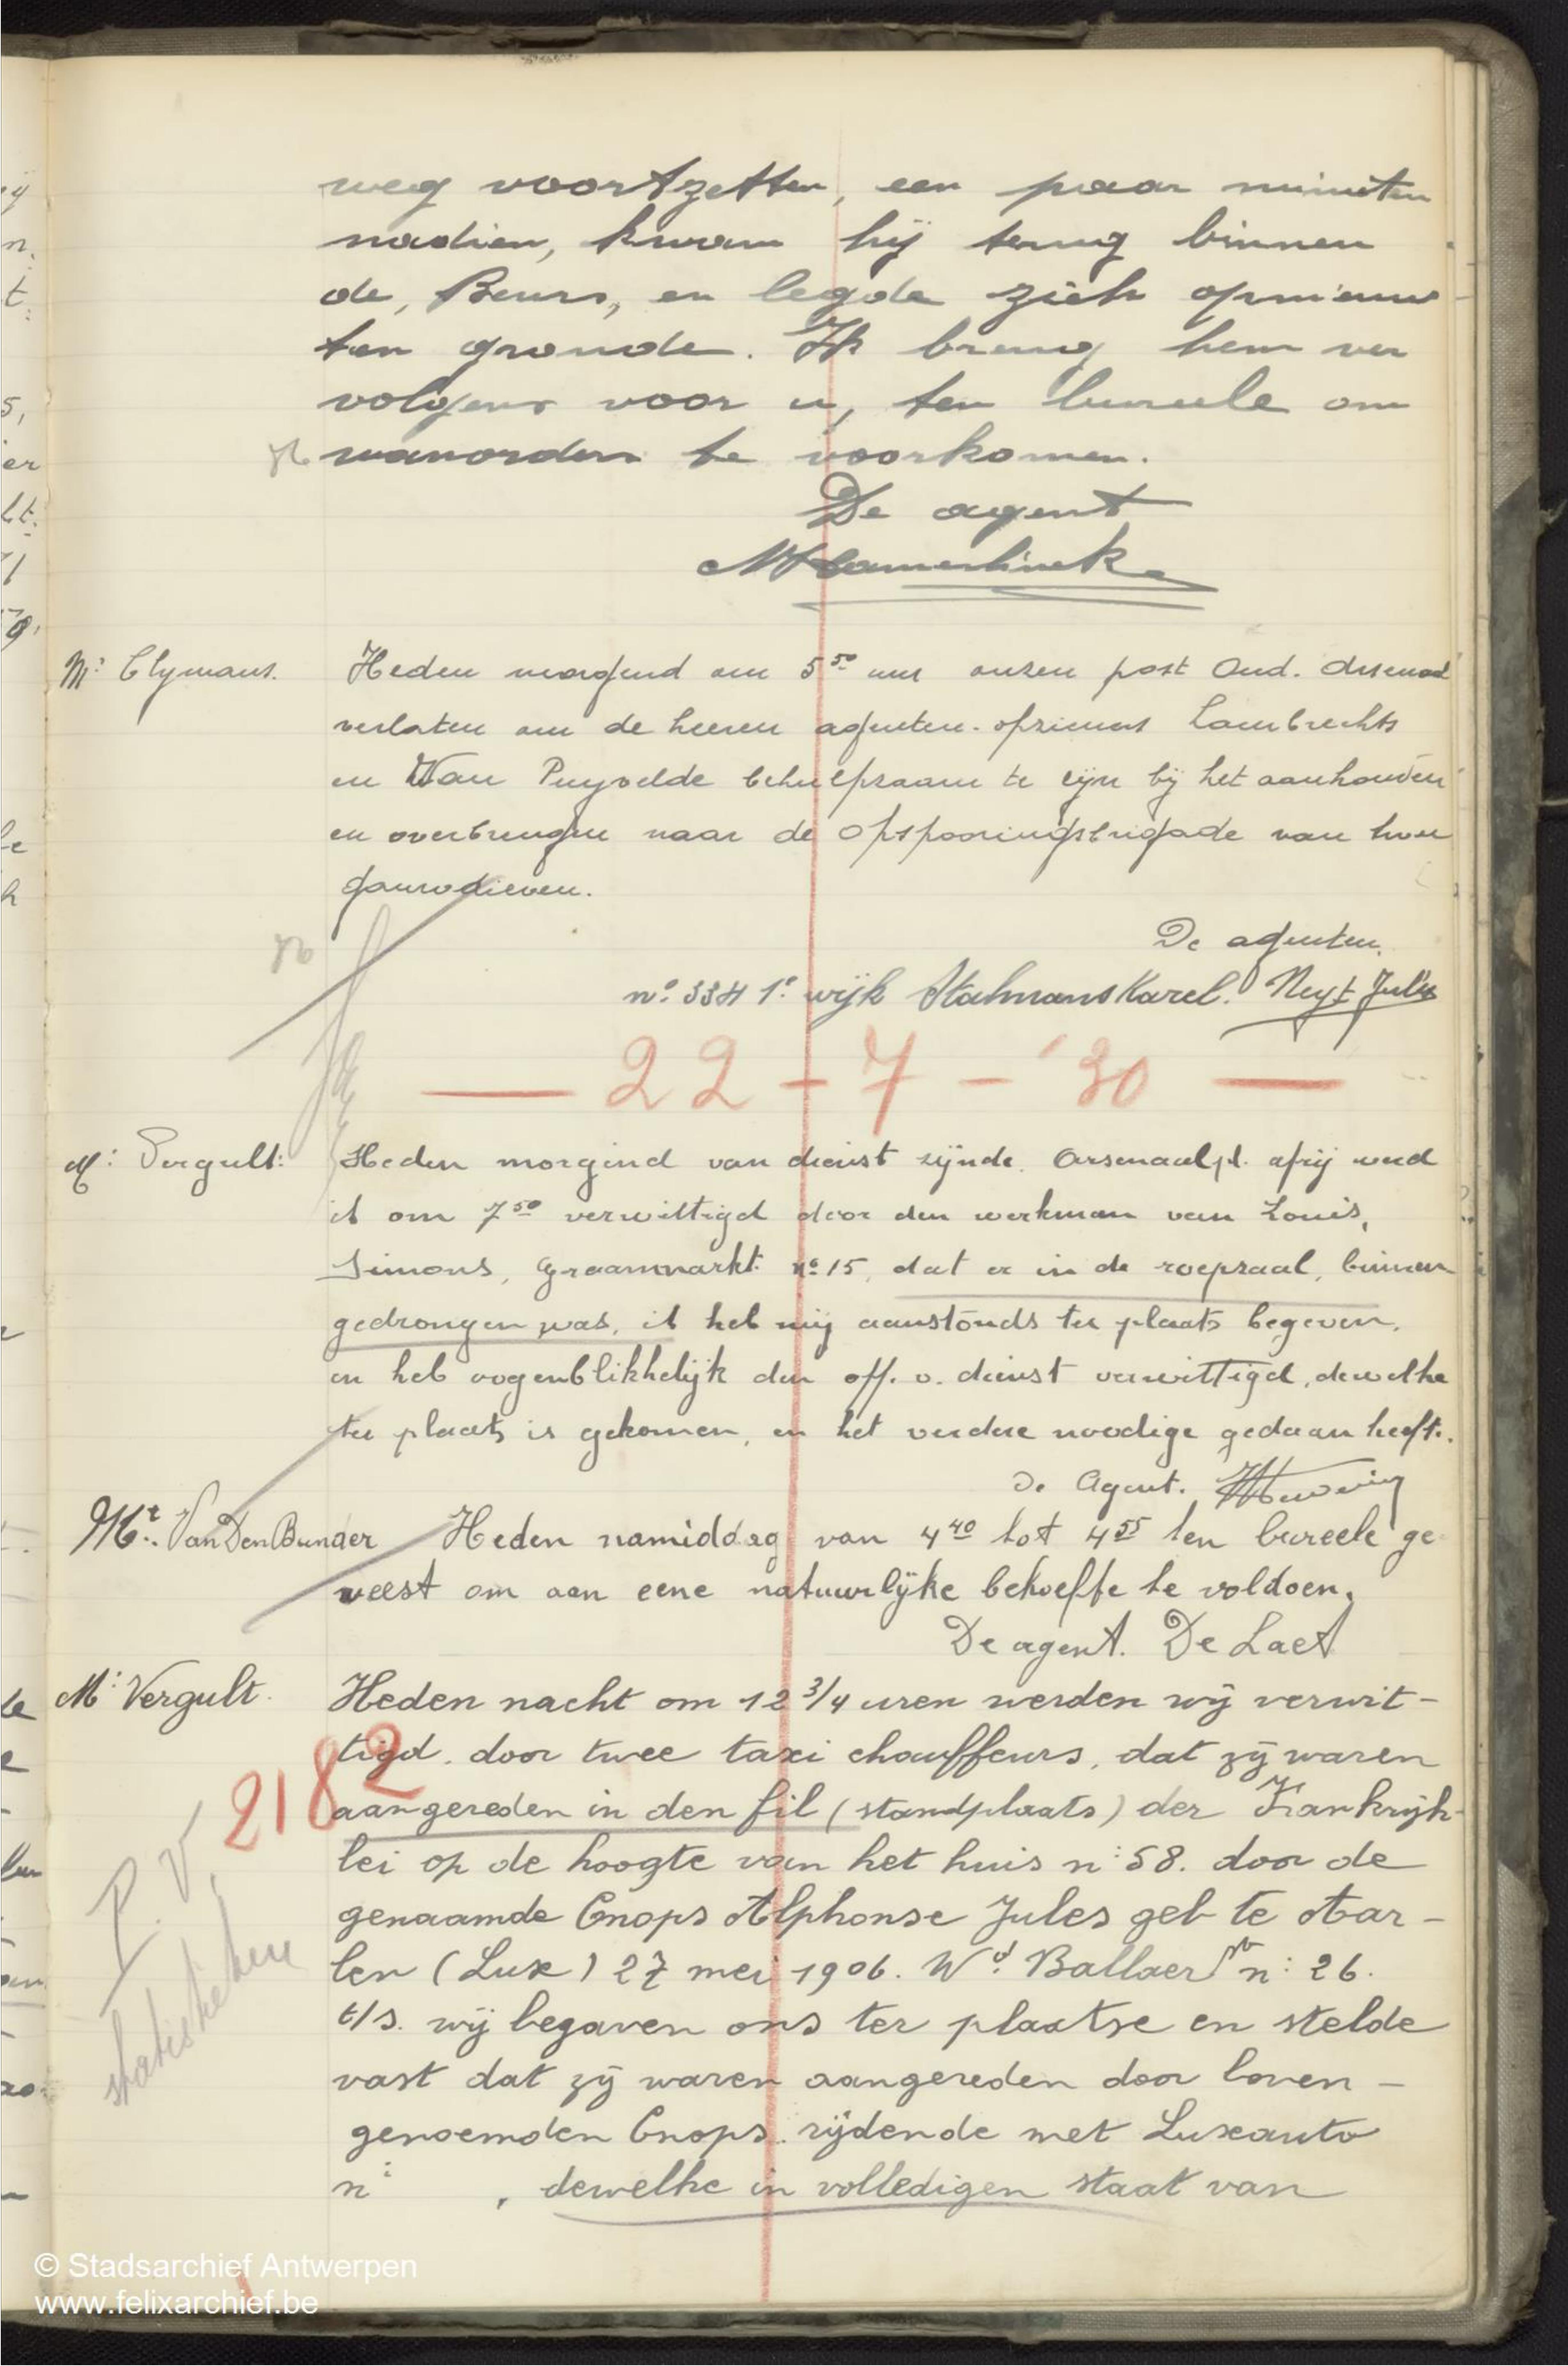 weg voortzetten, een paar minuten
nadien, kwam hij terug binnen
de, Beurs, en legde zich opnieuw
ten gronde. Ik breng hem ver
volgens voor u, ten bureele om
wanorders te voorkomen.
De agent
Mr Clymans.
Heden morgend om 5 50 uur onzen post Oud. Arsenaal
verlaten om de heeren agenten-opzieners Lambrechts
en Van Puyvelde behulpzaam te zijn bij het aanhouden
en overbrengen naar de opspooringsbrigade van twee
gauwdieven.
De agenten.
n° 334 1e wijk Stalmans Karel. Neyt Jules
— 22 - 7 - '30 —
Mr Vergult:
Heden morgend van dienst zijnde Arsenaalpl. afrij werd
ik om 7 50 verwittigd door den werkman van Louis,
Simons, Graanmarkt n° 15, dat er in de roepzaal, binnen
gedrongen was, ik heb mij aanstonds ter plaats begeven,
en heb oogenblikkelijk den off. v. dienst verwittigd, dewelke
ter plaats is gekomen, en het verdere noodige gedaan heeft.
De Agent.
Mr. Van Den Bunder Heden namiddag van 4 40 tot 4 55 ten bureele ge
weest om aan eene natuurlijke behoefte te voldoen.
De agent. De Laet
Mr Vergult.
Heden nacht om 12 3/4 uren werden wij verwit-
tigd. door twee taxi chauffeurs, dat zij waren
2182
aangereden in den fil (standplaats) der Frankrijk-
lei op de hoogte van het huis n: 58. door de
P. V.
genaamde Cnops Alphonse Jules geb te Aar-
len (Lux) 27 mei 1906. Wd. Ballaer str n: 26.
t/s. wij begaven ons ter plaatse en stelde
vast dat zij waren aangereden door boven-
genoemden Cnops. rijdende met Luxeauto
n: , dewelke in volledigen staat van
© Stadsarchief Antwerpen
www.felixarchief.be